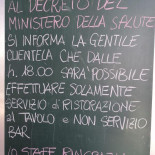 AL DECRETO DEL
MINISTERO DELLA SALUTE
SI INFORMA LA GENTILE
CLIENTELA CHE DALLE
h. 18.00 SARA' POSSIBILE
EFFETTUARE SOLAMENTE
SERVIZIO di RISTORAZIONE
al TAVOLO e NON SERVIZIO
BAR
LO STAFF RINGRAZIA